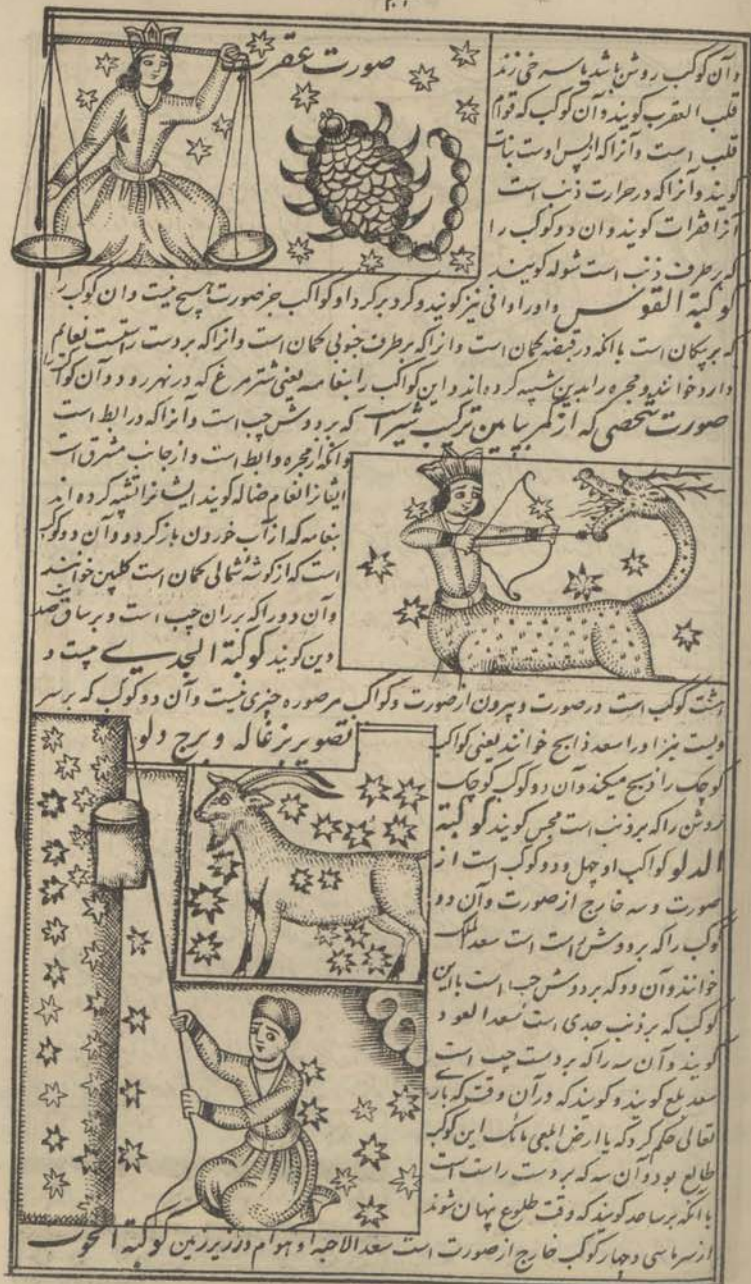 وآن کوکب روشن باشد با سه خی زند
صورت عقرب
قلب العقرب کویند وآن کوکب که قوام
قلب است وآنرا که از پس اوست بنات
کویند وآنرا که در حرارت ذنب است
آنرا فقرات کویند وان دو کوکب را
که بر طرف ذنب است شوله کویند
کوکبة القوس واورا وافی نیز کویند وکرد برکرد او کواکب جز صورت هیچ نیست وان کوکب را
که بر پیکان است با انکه در قبضه کمان است وانرا که بر طرف جنوبی کمان است وانرا که بر دست راست است نعائم
وارد خوانند ومجره را بدین شبیه کرده اند واین کواکب را بنعامه یعنی شتر مرغ که در نهر رود وآن کوکب
صورت شخصی که از کمر بپایین ترکیب شیر است که بر دوش چپ است وآنرا که در ابط است
وانکه از مجره وابط است واز جانب مشرق است
ایشانرا نعام ضاله کویند ایشانرا تشبیه کرده اند
بنعامه که از آب خوردن باز کردد وآن دو کوکب
است که از کوشهٔ شمالی کمان است کلبین خوانند
وآن دو را که بر ران چپ است وبر ساق
دین کویند کوکبة الجدی بیست و
هشت کوکب است در صورت وبیرون از صورت وکواکب مرصوده چیزی نیست وآن دو کوکب که بر سر
تصویر بزغاله و برج دلو
ویست نیز اورا سعد ذابح خوانند یعنی کواکب
کوچک را ذبح میکند وآن دو کوکب کوچک
روشن را که بر ذنب است محبس کویند کوکبة
الدلو کواکب او چهل ودو کوکب است از
صورت وسه خارج از صورت وآن دو
کوکب را که بر دوش راست است سعد الملک
خوانند وآن دو که بر دوش چپ است با این
کوکب که بر ذنب جدی است سعد السعود
کویند وآن سه را که بر دست چپ است
سعد بلع کویند وکویند که در آن وقت که باری
تعالی حکم کرد که یا ارض ابلعی مائک این کوکب
طالع بود وآن سه که بر دست راست است
با انکه بر ساعد کویند که وقت طلوع پنهان شوند
از سرما سی وچهار کوکب خارج از صورت است سعد الاخبیه او هوام در زیر زمین کوکبة الحوت